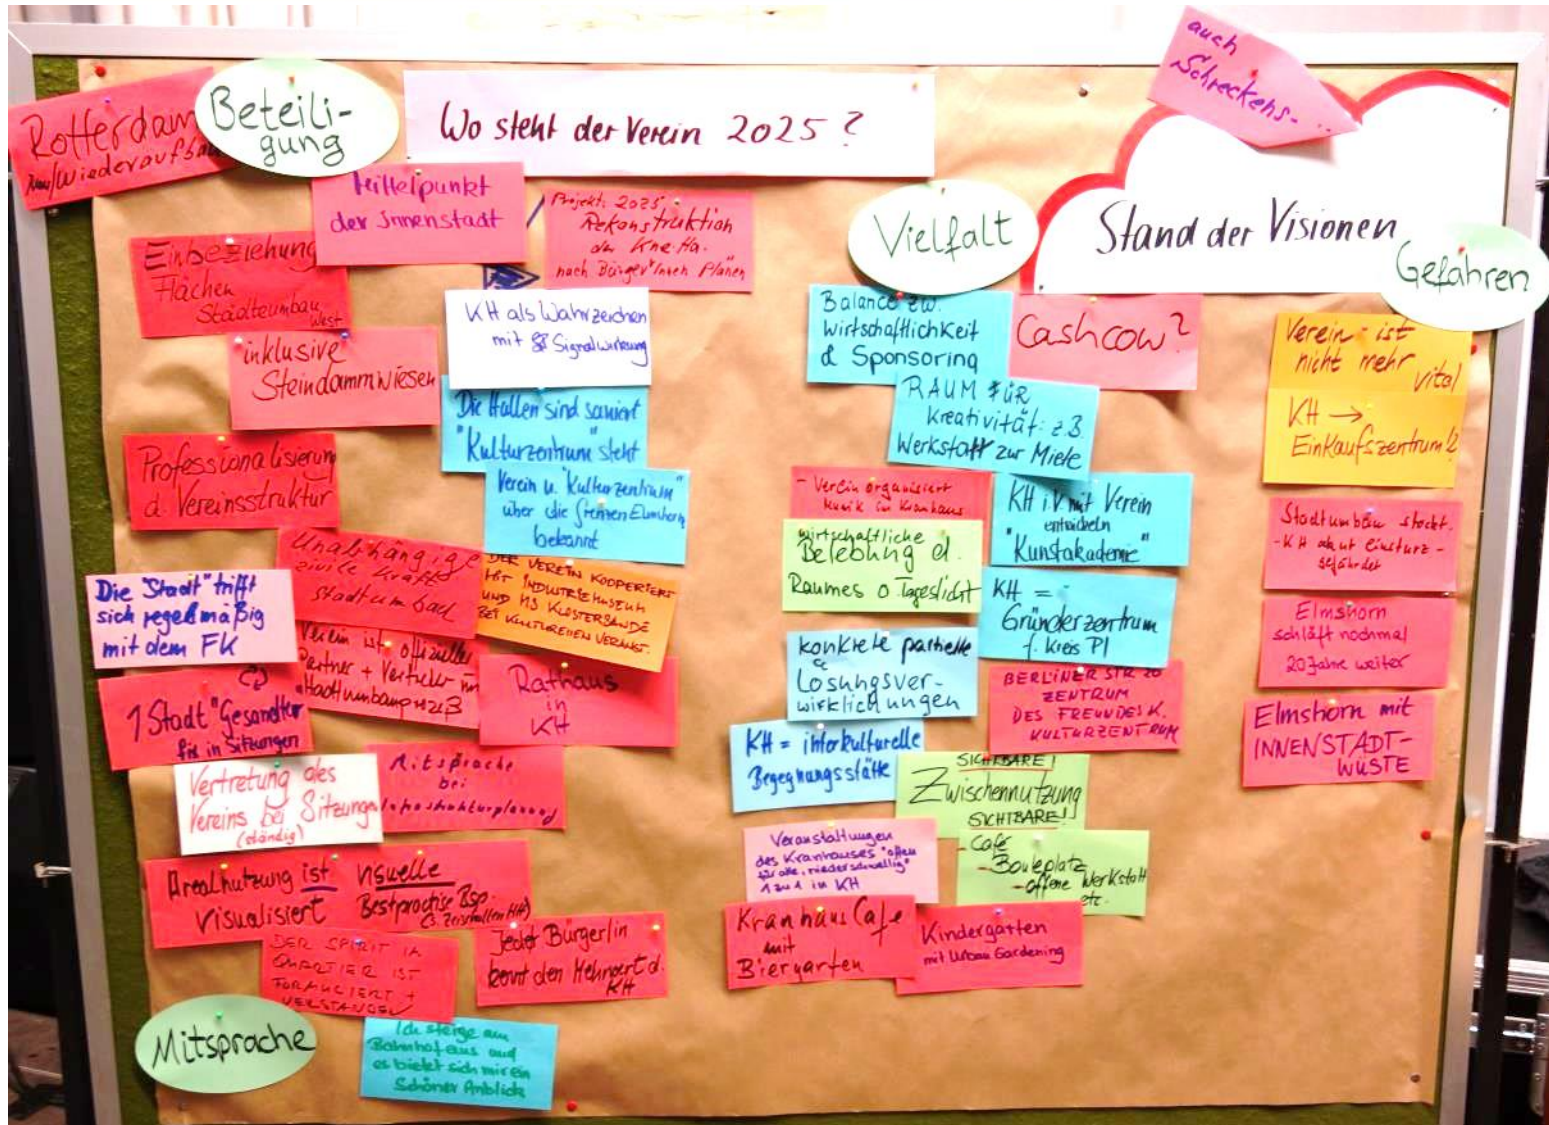 auch
Schreckens-...
Rotterdam
Beteili-
gung
Wo steht der Verein 2025?
Stand der Visionen
Vielfalt
Gefahren
Mittelpunkt
der Innenstadt
Projekt: 2025
Rekonstruktion
der Kne Ha.
nach Bürger*Innen Plänen
Einbeziehung
Flächen
Stadtumbau
West
inklusive
Steindammwiesen
KH als Wahrzeichen
mit Signalwirkung
Die Hallen sind saniert
"Kulturzentrum" steht
Professionalisierung
d. Vereinsstruktur
Verein u. "Kulturzentrum"
über die Grenzen Elmshorn
bekannt
Unabhängige
zivile Kraft
Stadtumbau
DER VEREIN KOOPERIERT
MIT INDUSTRIEMUSEUM
UND MS KLOSTERSANDE
BEI KULTURELLEN VERANST.
Die "Stadt" trifft
sich regelmäßig
mit dem FK
Verein ist offizieller
Partner + Vertreter im
Stadtumbauprozeß
Rathaus
in
KH
1 Stadt "Gesandter"
fix in Sitzungen
Vertretung des
Vereins bei Sitzungen
(ständig)
Mitsprache
bei
Infrastrukturplanung
Arealnutzung ist
visualisiert
visuelle
Bestpractise Bsp.
DER SPIRIT IM
QUARTIER IST
FORMULIERT +
VERSTANDEN
Jeder Bürger/in
kennt den Mehrwert d.
KH
Mitsprache
Ich steige am
Bahnhof aus und
es bietet sich mir ein
schöner Anblick
Balance zw.
Wirtschaftlichkeit
& Sponsoring
Cashcow?
RAUM FÜR
Kreativität: z.B.
Werkstatt zur Miete
- Verein organisiert
Musik im Kranhaus
KH i.V. mit Verein
entwickeln
"Kunstakademie"
wirtschaftliche
Belebung d.
Raumes o Tageslicht
KH =
Gründerzentrum
f. Kreis PI
konkrete partielle
Lösungsver-
wirklichungen
BERLINER STR 20
ZENTRUM
DES FREUNDESK.
KULTURZENTRUM
KH = interkulturelle
Begegnungsstätte
SICHTBARE!
Zwischennutzung
SICHTBARE!
Veranstaltungen
des Kranhauses "offen
für alle, niederschwellig"
1 zu 1 in KH
- Café
- Bouleplatz
- offene Werkstatt
etc.
Kranhaus Cafe
mit
Biergarten
Kindergarten
mit Urban Gardening
Verein - ist
nicht mehr
vital
KH →
Einkaufszentrum!?
Stadtumbau stockt.
- KH akut einsturz-
gefährdet
Elmshorn
schläft nochmal
20 Jahre weiter
Elmshorn mit
INNENSTADT-
WÜSTE